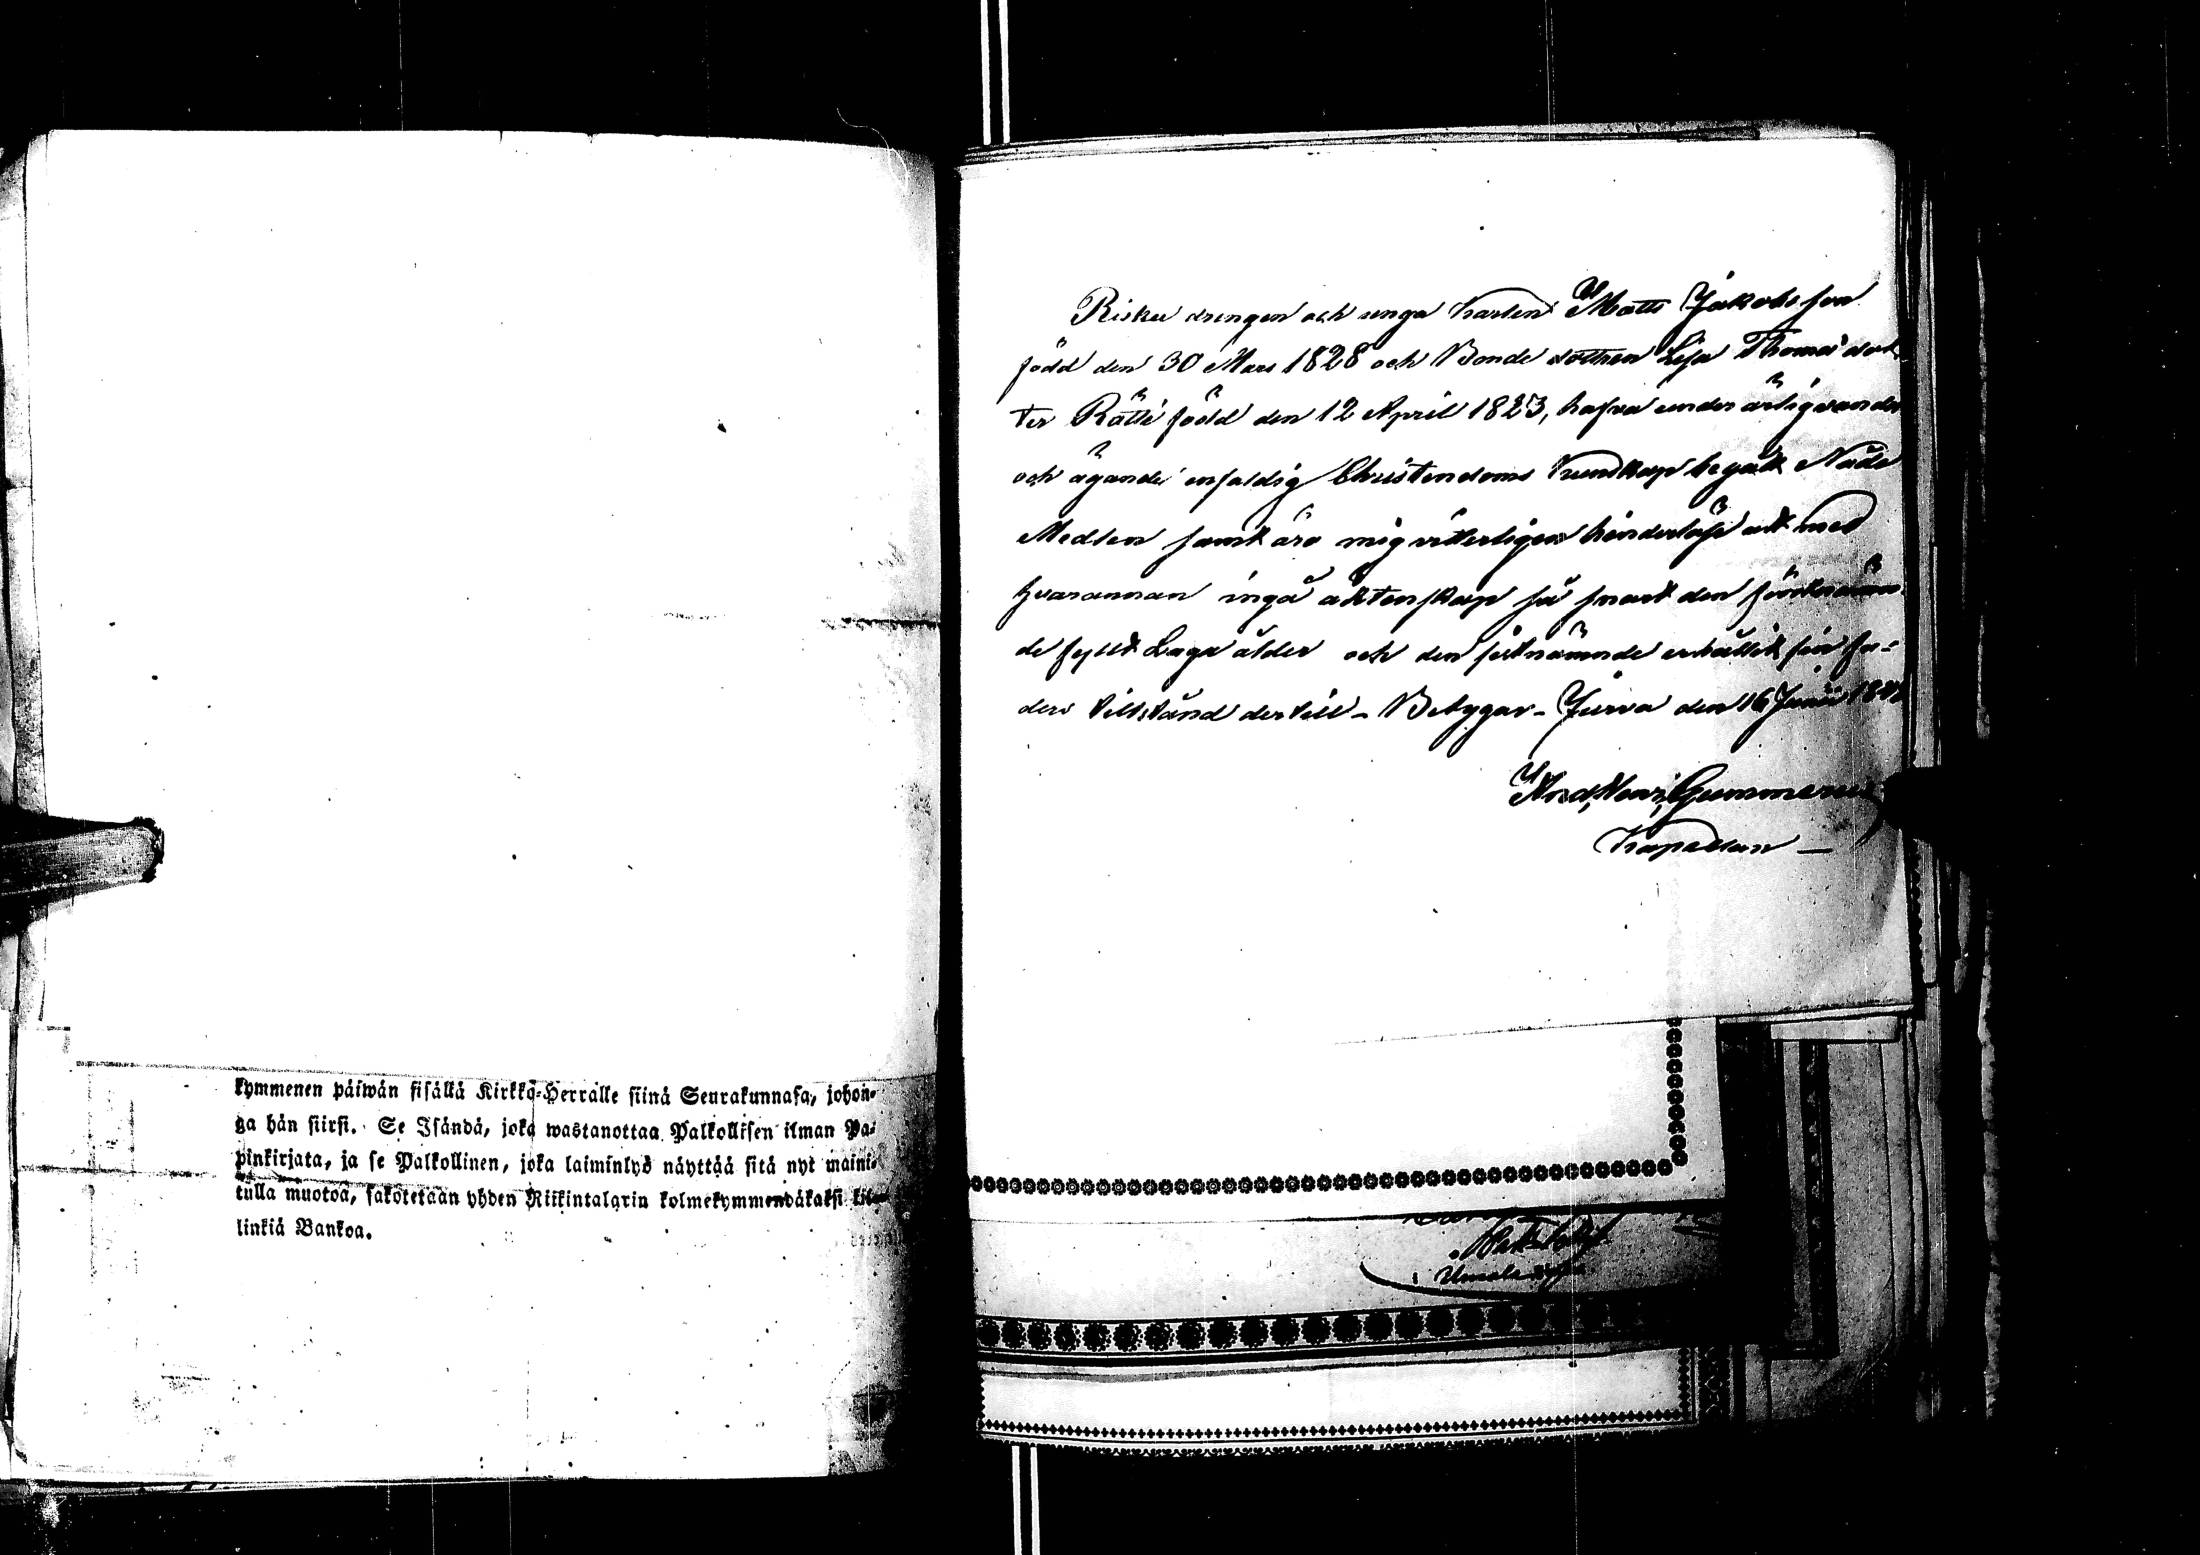 kymmenen päiwän sisällä Kirkko-Herralle siinä Seurakunnasa, johon-
ga hän siirsi. Se Isändä, joka wastanottaa Palkollisen ilman Pa-
pinkirjata, ja se Palkollinen, joka laiminlyö näyttää sitä nyt maini-
tulla muotoa, sakotetaan yhden Riikintalarin kolmekymmendäkaksi kil-
linkiä Bankoa.
Risku drengen och unga karlen Matts Jakobsson
född den 30 Mars 1828 och Bonde dottren Lisa Thomæ dot-
ter Rätti född den 12 April 1823, hafva under ärlig vandel
och ägande enfaldig Christendoms kundskap begått Nåde
Medlen samt äro mig vitterligen hinderlöse att med
hvarannan ingå äktenskap så snart den förstnämn
de fyllt Laga ålder och den sistnämnde erhållit sin fa-
ders tillstånd dertill - Betygar - Jurva den 16 Junii
And, Henr, Gummerus
Kapellan —